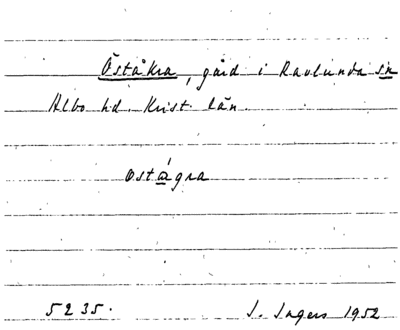 Öståkra, gård i Ravlunda sn
Albo hd. Krist. län.
ostágra
5235. J. Ingers 1952